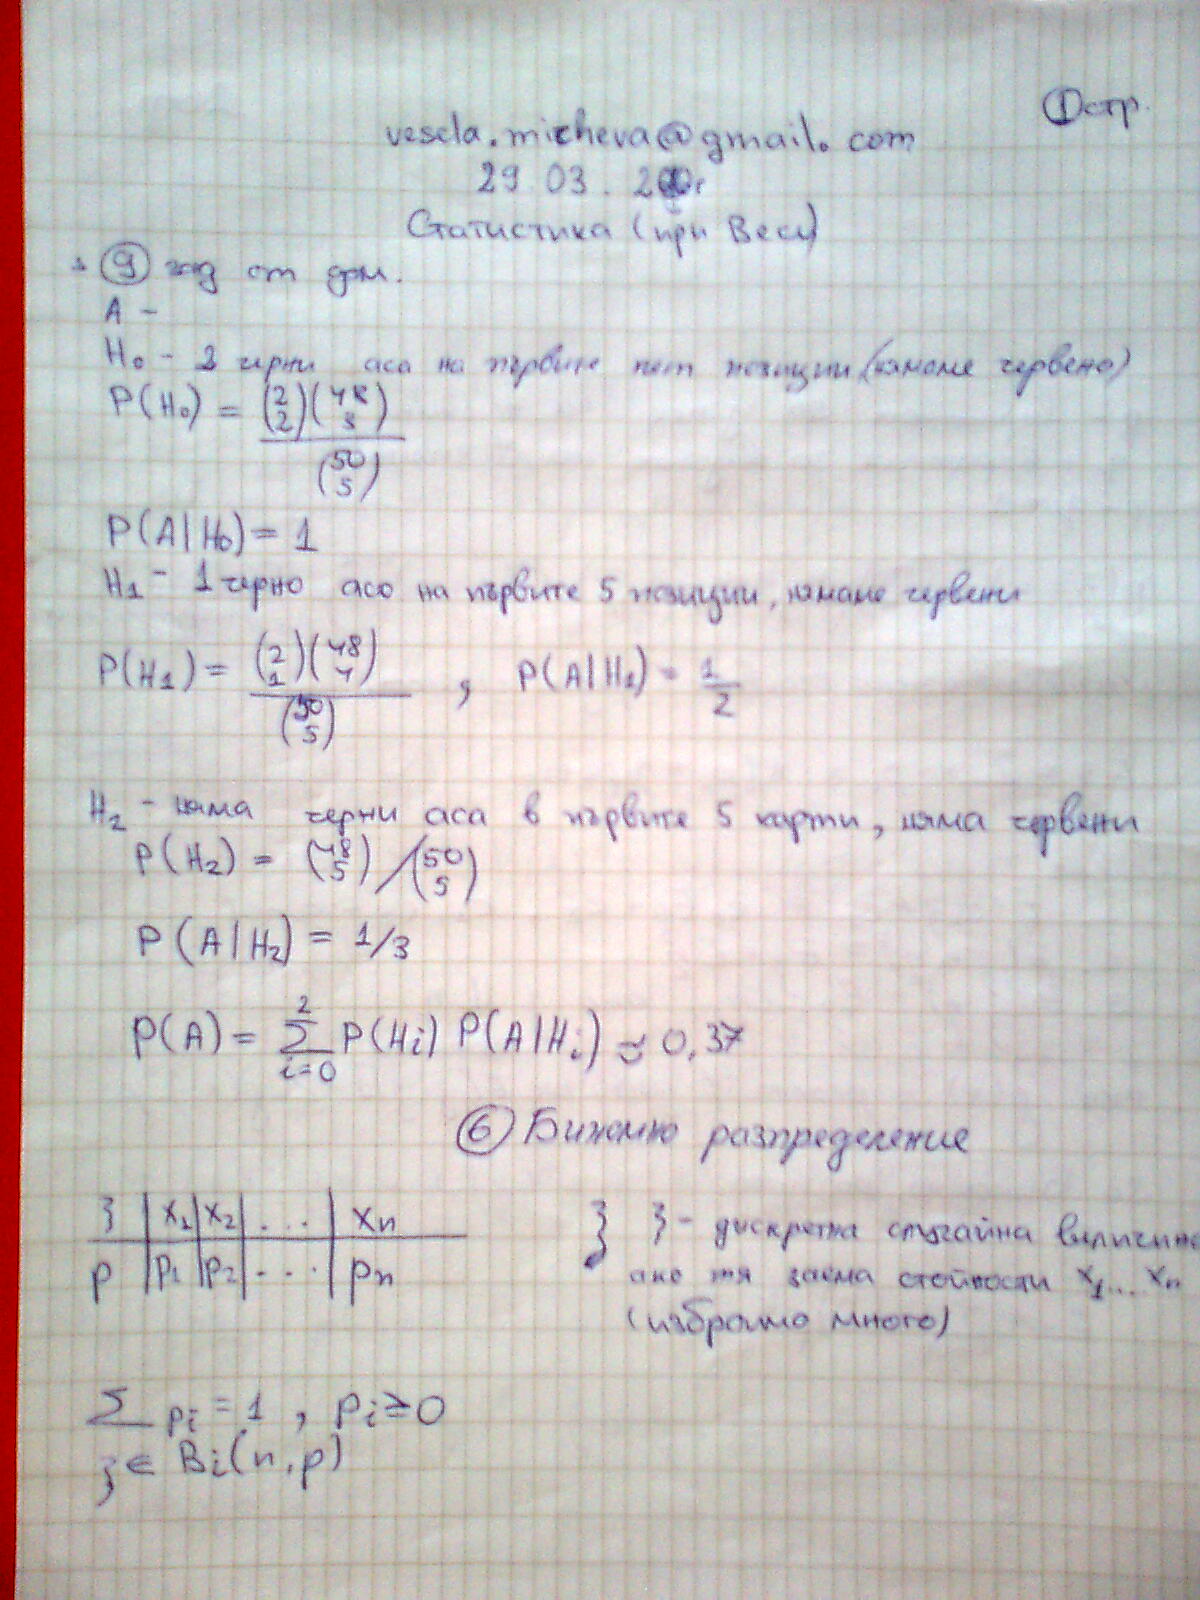 ① стр.
vesela.micheva@gmail.com
29.03.
Статистика (при Веси)
⑨ зад от дом.
A -
H₀ - 2 черни аса на първите пет позиции (нямаме червено)
P(H₀) = (2 2)(48 3) / (50 5)
P(A|H₀) = 1
H₁ - 1 черно асо на първите 5 позиции, нямаме червени
P(H₁) = (2 1)(48 4) / (50 5) , P(A|H₁) = 1/2
H₂ - няма черни аса в първите 5 карти, няма червени
P(H₂) = (48 5) / (50 5)
P(A|H₂) = 1/3
P(A) = ∑ᵢ₌₀² P(Hᵢ) P(A|Hᵢ) ≈ 0,37
⑥ Биномно разпределение
ξ | x₁ | x₂ | ... | xₙ
p | p₁ | p₂ | ... | pₙ
ξ - дискретна случайна величина
ако тя заема стойности x₁...xₙ
(изброимо много)
∑ pᵢ = 1 , pᵢ ≥ 0
ξ ∈ Bi(n,p)